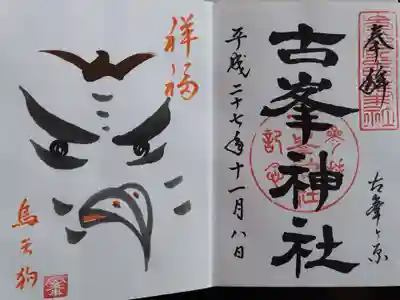 奉拝
古峯ヶ原
古峯神社
平成二十七年十一月八日
祥福
烏天狗